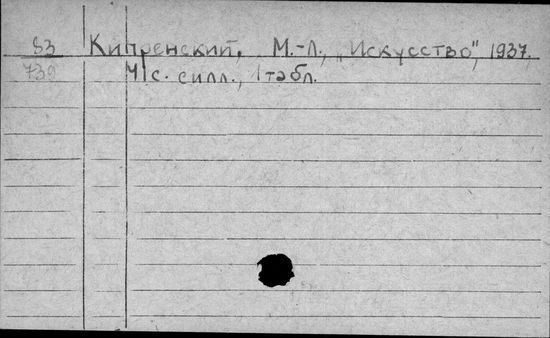 83 Кипренский. М.-Л., „Искусство", 1937.
739 41с. силл., 1табл.